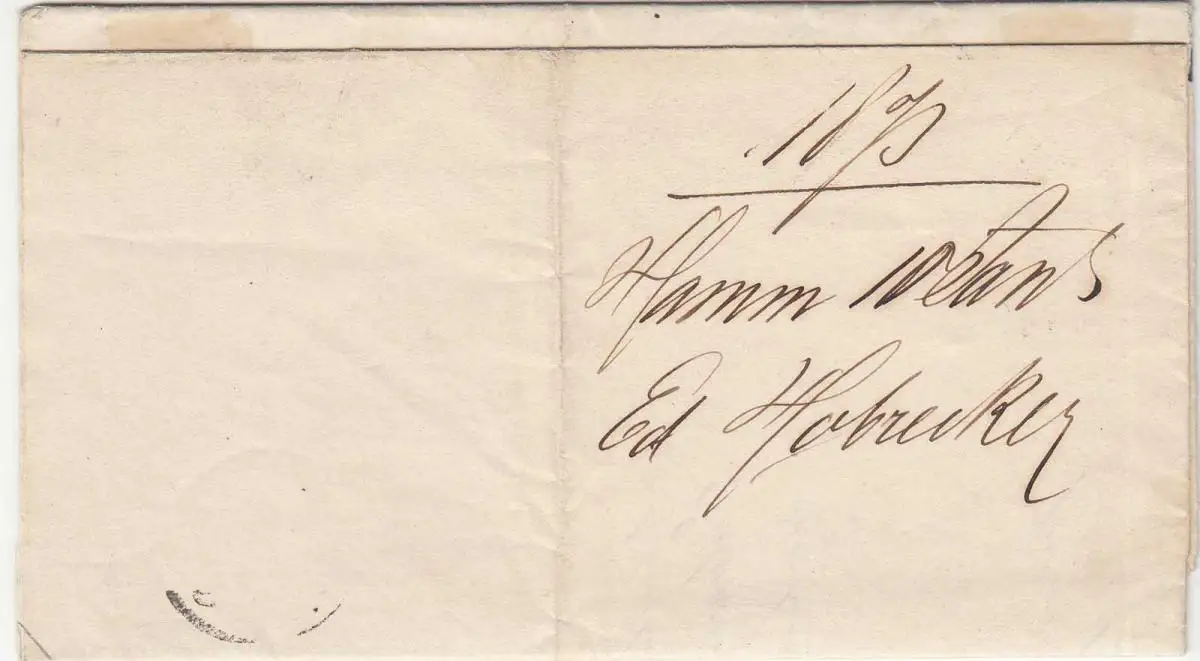 1875
Hamm 10 Jan 5
Ed Hobrecker